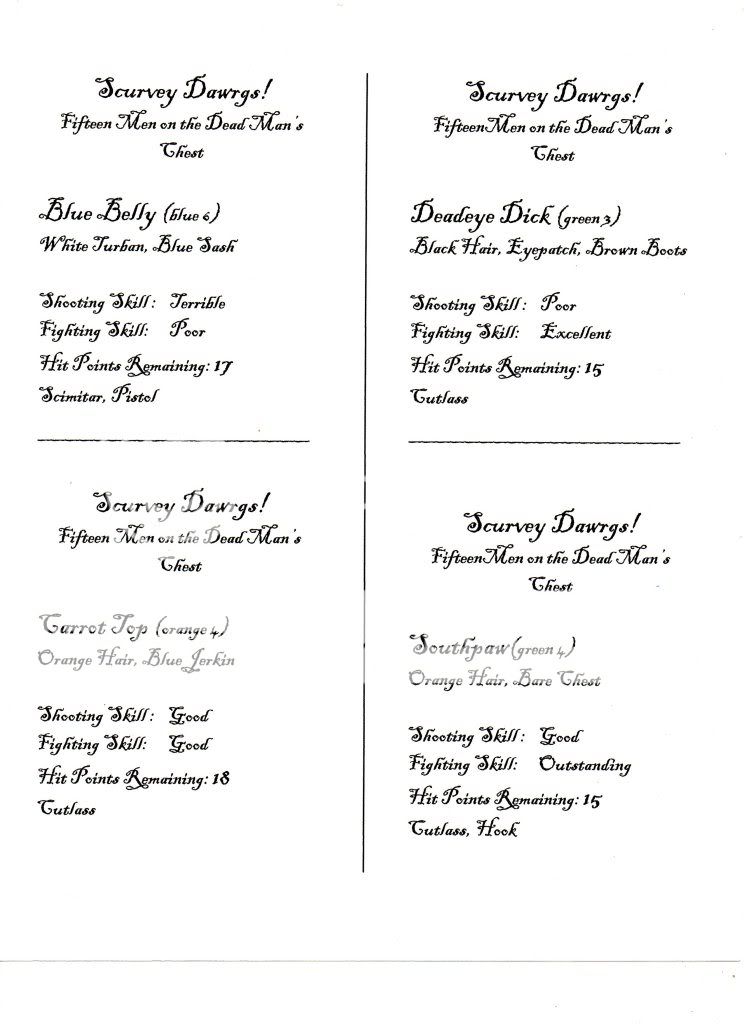 Scurvey Dawrgs!
Fifteen Men on the Dead Man's
Chest
Blue Belly (blue 6)
White Turban, Blue Sash
Shooting Skill: Terrible
Fighting Skill: Poor
Hit Points Remaining: 17
Scimitar, Pistol
Scurvey Dawrgs!
FifteenMen on the Dead Man's
Chest
Deadeye Dick (green 3)
Black Hair, Eyepatch, Brown Boots
Shooting Skill: Poor
Fighting Skill: Excellent
Hit Points Remaining: 15
Cutlass
Scurvey Dawrgs!
Fifteen Men on the Dead Man's
Chest
Carrot Top (orange 4)
Orange Hair, Blue Jerkin
Shooting Skill: Good
Fighting Skill: Good
Hit Points Remaining: 18
Cutlass
Scurvey Dawrgs!
FifteenMen on the Dead Man's
Chest
Southpaw(green 4)
Orange Hair, Bare Chest
Shooting Skill: Good
Fighting Skill: Outstanding
Hit Points Remaining: 15
Cutlass, Hook